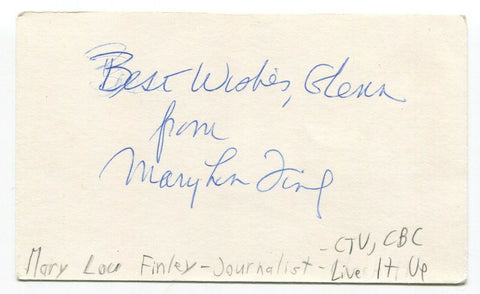 Best Wishes, Glenn
from
Mary Lou Finley
- CTV, CBC
Mary Lou Finley - Journalist - Live It Up